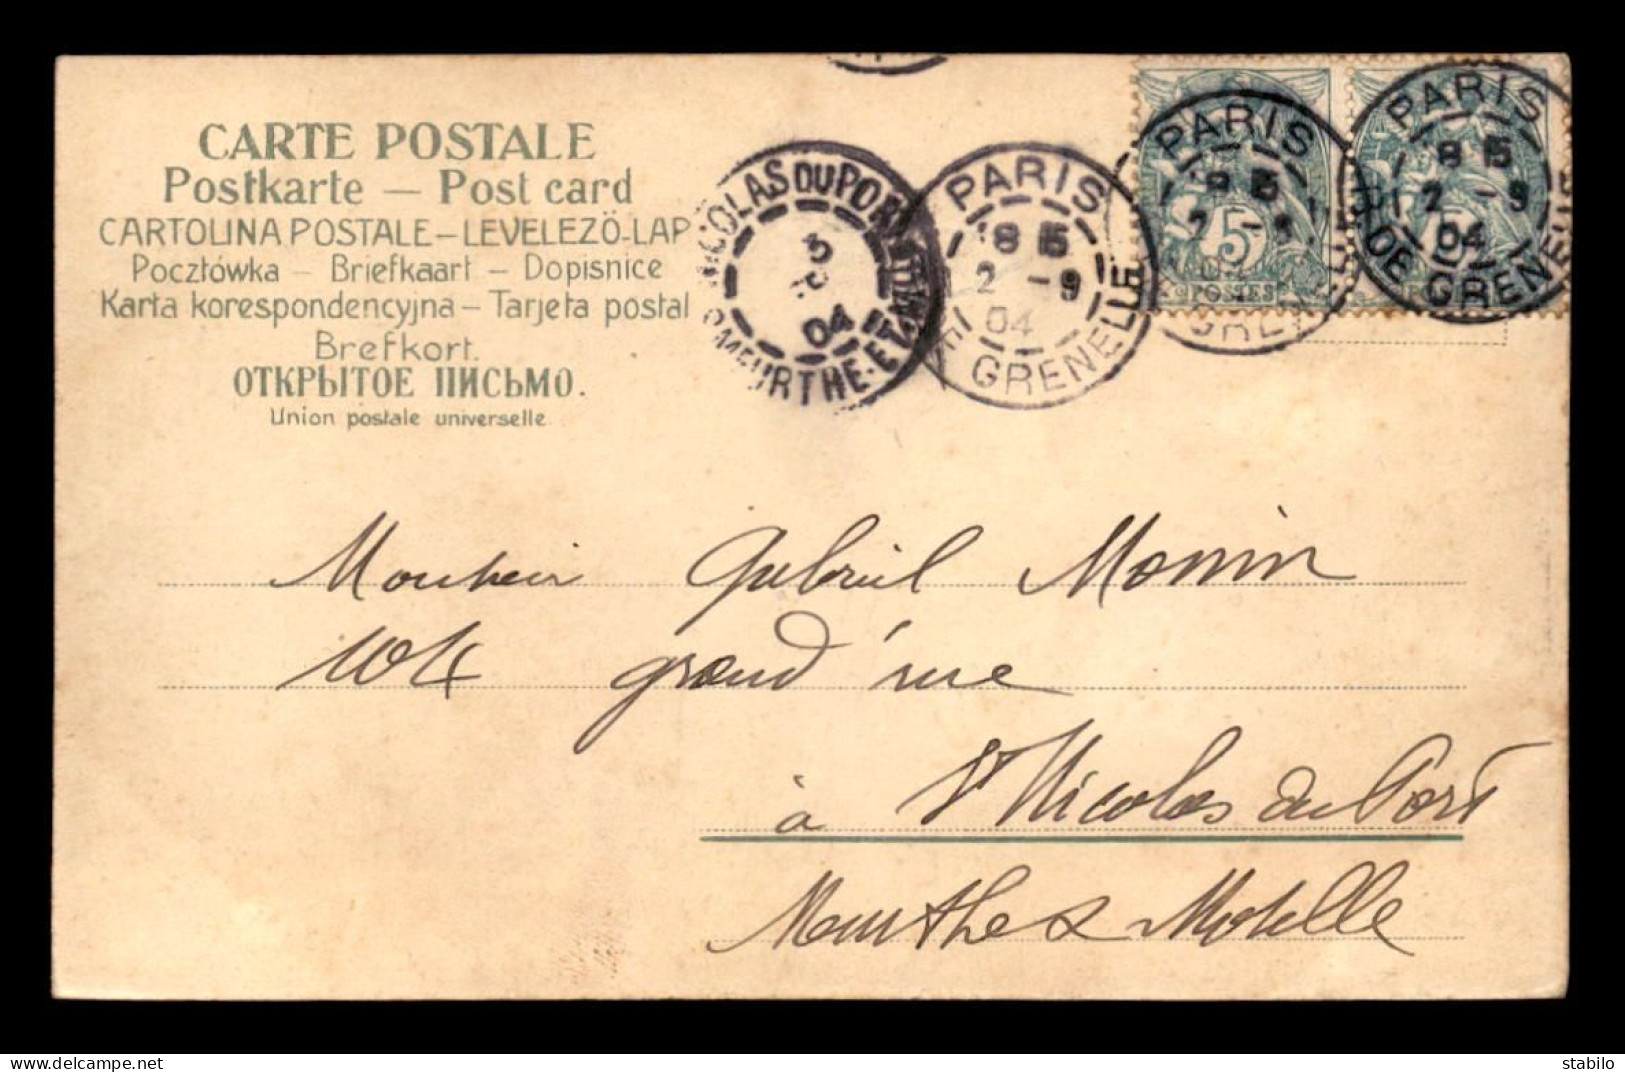 CARTE POSTALE
Postkarte — Post card
CARTOLINA POSTALE – LEVELEZÖ-LAP
Pocztówka – Briefkaart – Dopisnice
Karta korespondencyjna – Tarjeta postal
Brefkort.
ОТКРЫТОЕ ПИСЬМО.
Union postale universelle
NICOLAS DU PORT
3
04
MEURTHE-ET-M
PARIS
18 15
2 - 9
04
GRENELLE
PARIS
15
2 - 9
GRENELLE
5
POSTES
PARIS
18 15
2 - 9
04
R. DE GRENELLE
Monsieur Gabriel Monin
104 grand'rue
à St Nicolas du Port
Meurthe & Moselle
stabilo
www.delcampe.net